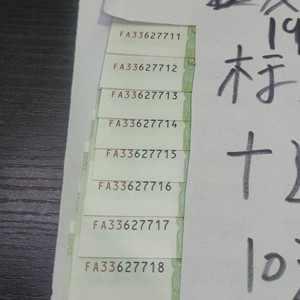 FA33627711
19
FA33627712
标
FA33627713
FA33627714
FA33627715
十
FA33627716
FA33627717
10
FA33627718